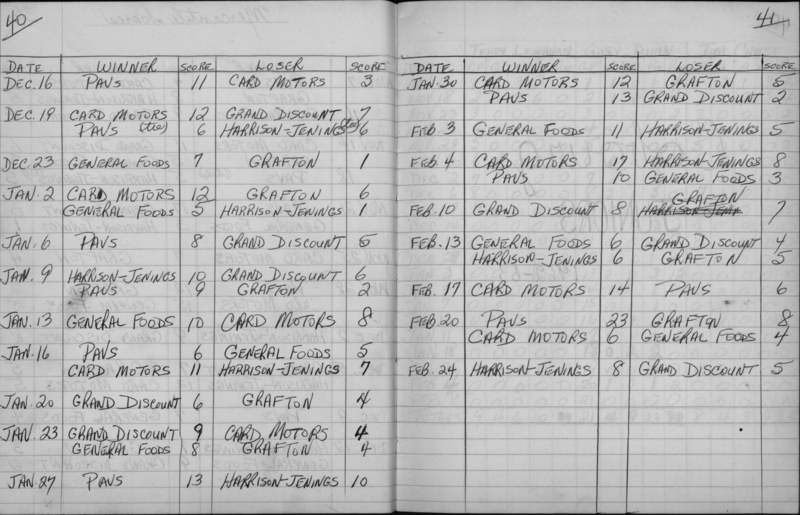 40
DATE WINNER SCORE LOSER SCORE
DEC. 16 PAVS 11 CARD MOTORS 3
DEC. 19 CARD MOTORS 12 GRAND DISCOUNT 7
PAVS (tie) 6 HARRISON-JENINGS (tie) 6
DEC. 23 GENERAL FOODS 7 GRAFTON 1
JAN. 2 CARD MOTORS 12 GRAFTON 6
GENERAL FOODS 5 HARRISON-JENINGS 1
JAN. 6 PAVS 8 GRAND DISCOUNT 5
JAN. 9 HARRISON-JENINGS 10 GRAND DISCOUNT 6
PAVS 9 GRAFTON 2
JAN. 13 GENERAL FOODS 10 CARD MOTORS 8
JAN. 16 PAVS 6 GENERAL FOODS 5
CARD MOTORS 11 HARRISON-JENINGS 7
JAN. 20 GRAND DISCOUNT 6 GRAFTON 4
JAN. 23 GRAND DISCOUNT 9 CARD MOTORS 4
GENERAL FOODS 8 GRAFTON 4
JAN. 27 PAVS 13 HARRISON-JENINGS 10
41
DATE WINNER SCORE LOSER SCORE
JAN. 30 CARD MOTORS 12 GRAFTON 5
PAVS 13 GRAND DISCOUNT 2
FEB. 3 GENERAL FOODS 11 HARRISON-JENNINGS 5
FEB. 4 CARD MOTORS 17 HARRISON-JENNINGS 8
PAVS 10 GENERAL FOODS 3
GRAFTON
FEB. 10 GRAND DISCOUNT 8 HARRISON-JEN 7
FEB. 13 GENERAL FOODS 6 GRAND DISCOUNT 4
HARRISON-JENINGS 6 GRAFTON 5
FEB. 17 CARD MOTORS 14 PAVS 6
FEB. 20 PAVS 23 GRAFTON 8
CARD MOTORS 6 GENERAL FOODS 4
FEB. 24 HARRISON-JENINGS 8 GRAND DISCOUNT 5